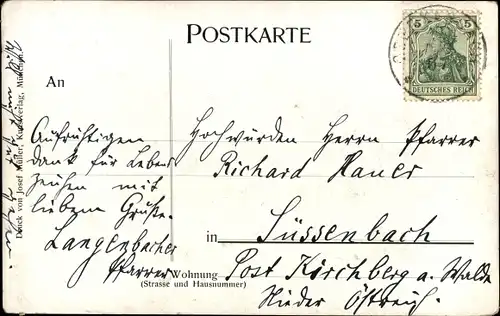 POSTKARTE
5 5
DEUTSCHES REICH
An
Aufrichtigen
dank für Lebens
zeichen mit
liebem Gruße.
Langenbacher
Pfarrer
Hochwürden Herrn Pfarrer
Richard Hauer
in Süssenbach
Wohnung Post Kirchberg a. Walde
(Strasse und Hausnummer)
Nieder Östreich.
Druck von Josef Müller, Kunstverlag, München.